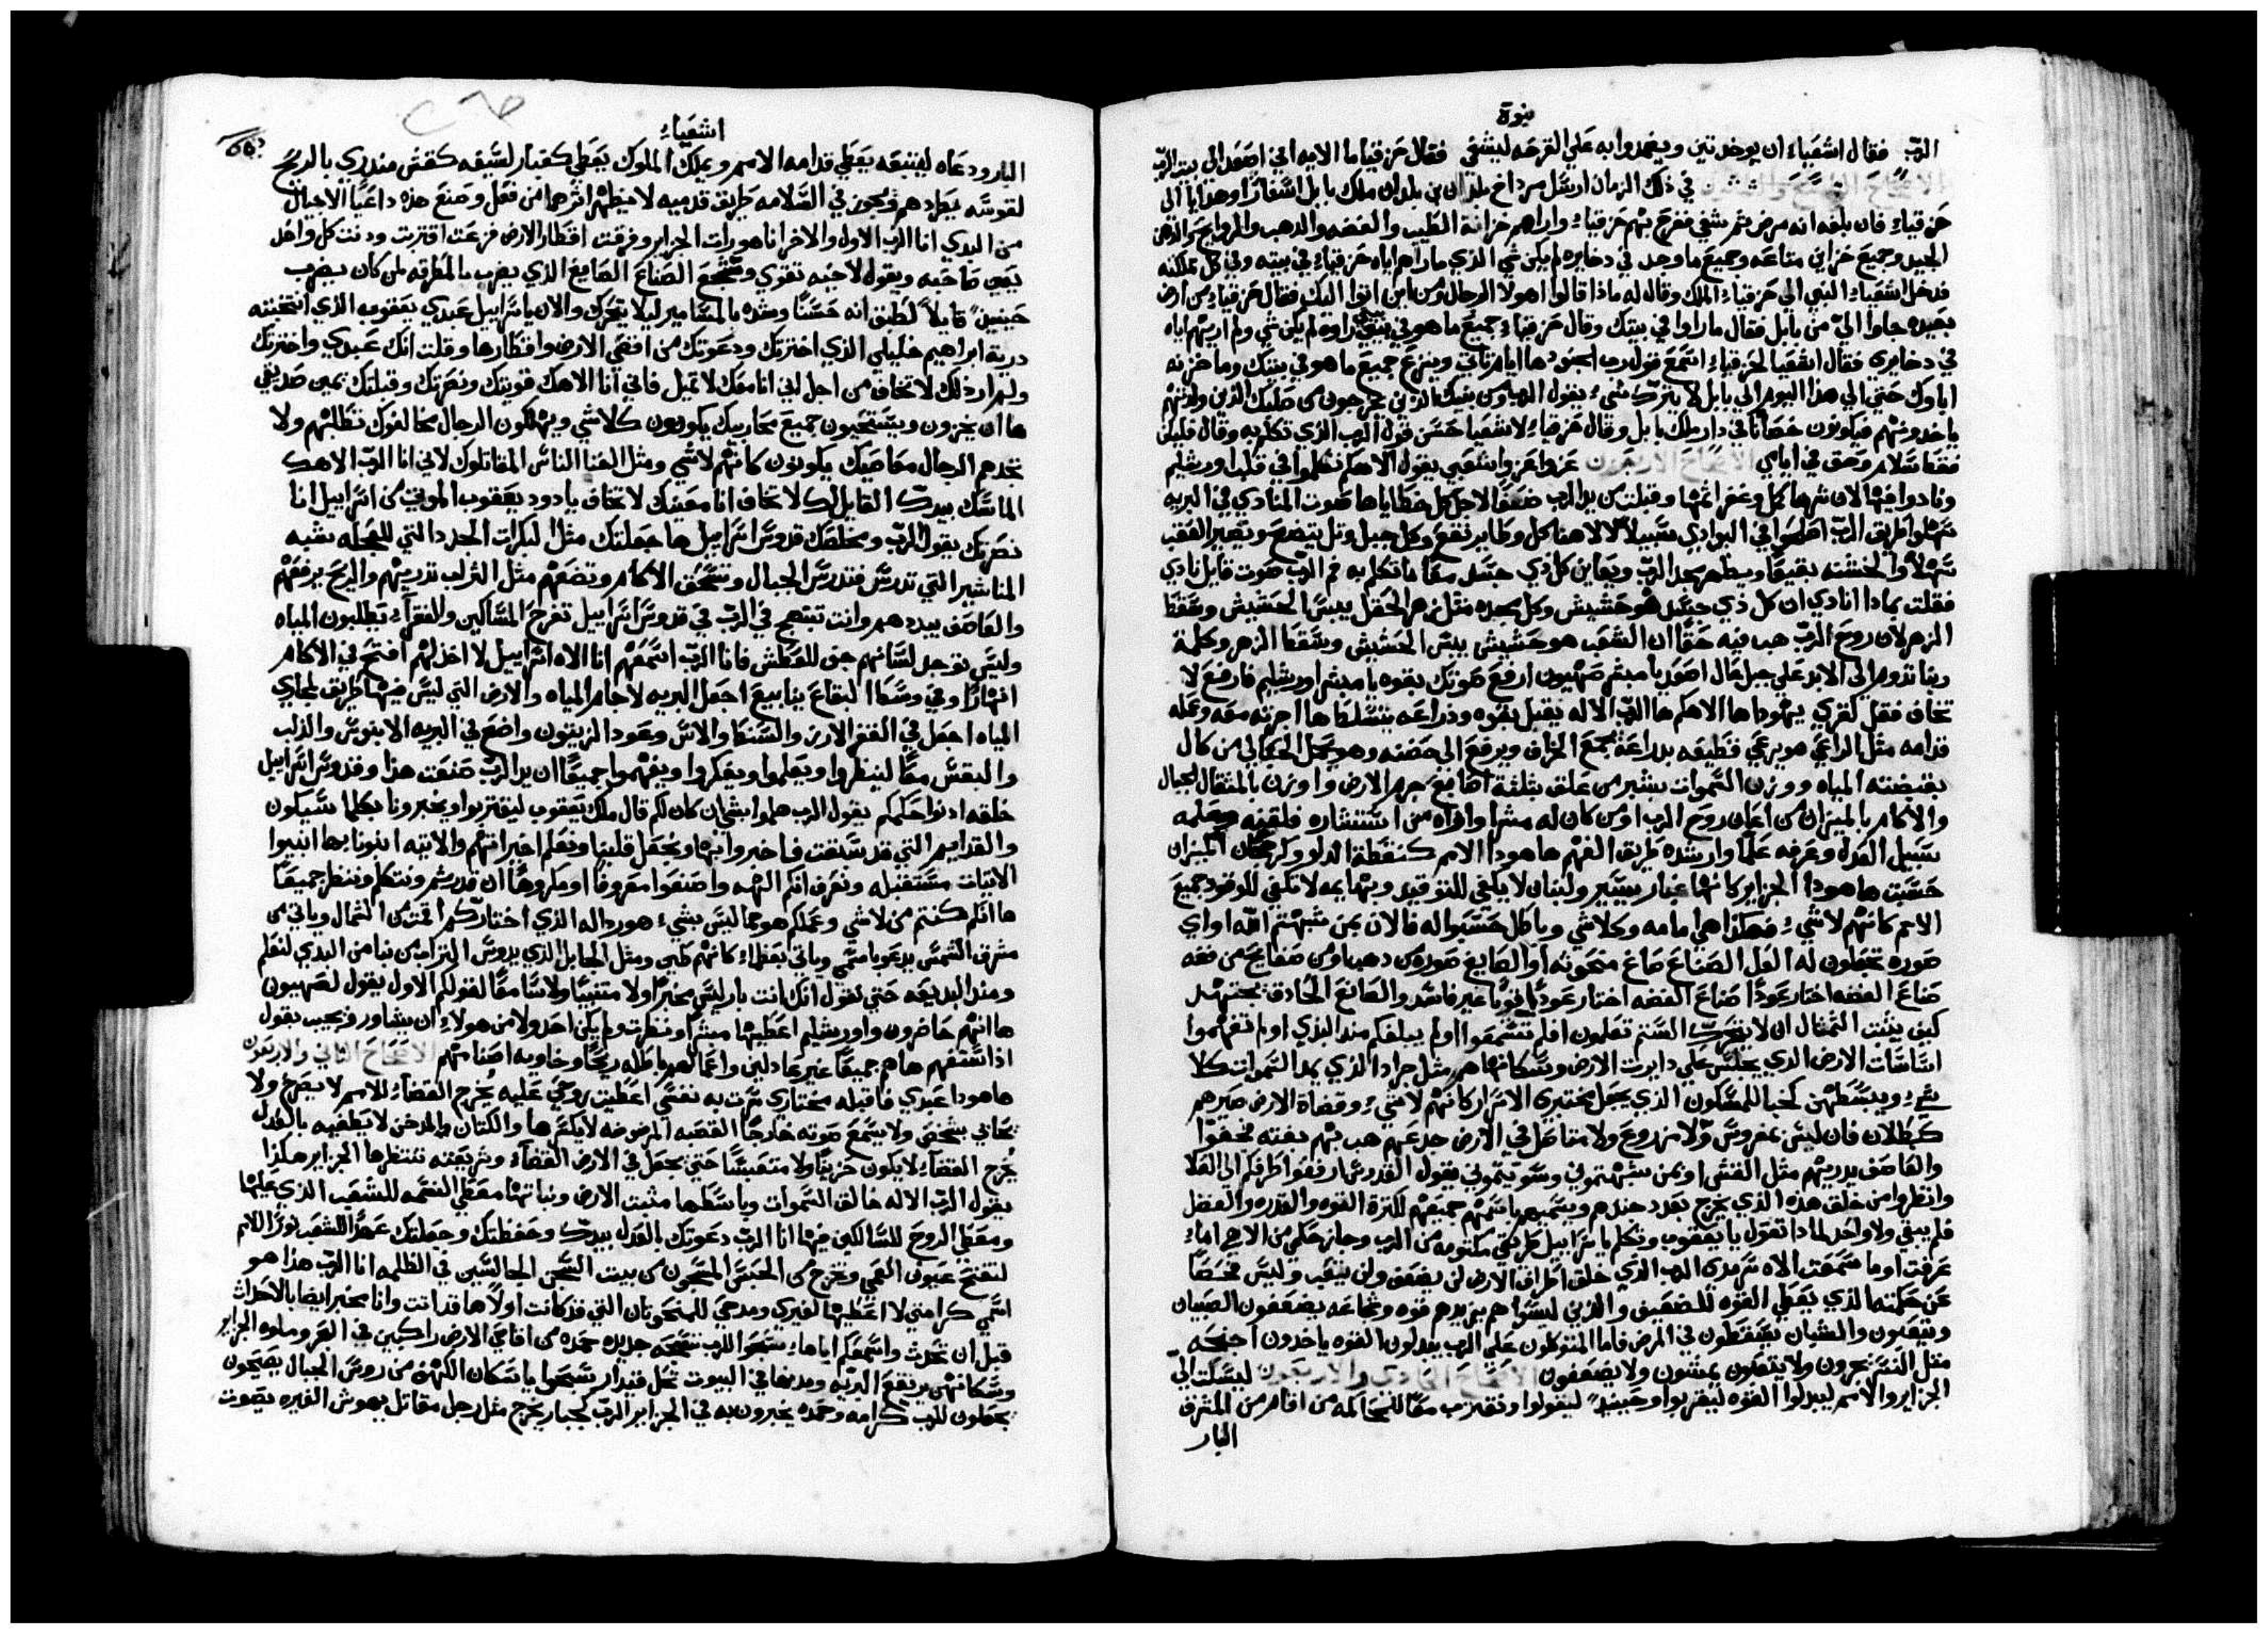 نبوة
الرب فقال اشعياء ان يوخد تين ويضمدوا به علي القرحه ليشفي فقال حزقيا ما الايه اني اصعد الي بيت الرب
في ذلك الزمان ارسل مرداخ بلدان بن بلدان ملك بابل اسفارا وهدايا الي
حزقياء فان بلغه انه مرض ثم شفي ففرح بهم حزقياء واراهم خزانة الطيب والفضه والدهب والروايح والدهن
الجيد وجميع خزاين متاعه وجميع ما وجد في دخايره لم يكن شي الذي ما اراهم اياه حزقياء في بيته وفي كل مملكته
فدخل اشعياء النبي الي حزقياء الملك وقال له ماذا قالوا اهولا الرجال ومن اين اتوا اليك فقال حزقياء من ارض
بعيده جاوا الي من بابل فقال ما راوا في بيتك وقال حزقياء جميع ما هو في بيتي راوه لم يكن شي ولم اريهم اياه
في دخايري فقال اشعيا لحزقياء استمع قول رب الجنود ها ايام تاتي وينزع جميع ما هو في بيتك وما خزنه
اباوك حتي الي هذا اليوم الي بابل لا يترك شيء يقول الرب ومن بنيك الذين يخرجون من صلبك الذين ولدتهم
ياخدونهم فيكونون خصيانا في دار ملك بابل وقال حزقياء لاشعيا حسن قول الرب الذي تكلم به وقال فليكن
فقط سلام وحق في ايامي الاصحاح الاربعون عزوا عزوا شعبي يقول الاهكم تكلموا في قلب اورشليم
ونادوا فيها لان شرها كمل وغفر اثمها وقبلت من يد الرب ضعفا لاجل كل خطاياها صوت المنادي في البريه
سهلوا طريق الرب اصلحوا في البوادي سبيلا لالاهنا كل وطا يرتفع وكل جبل وتل يتضع وتصير العقب
سهلا والخشنه بقيعا ويظهر مجد الرب ويعاين كل ذي جسد معا ما تكلم به فم الرب صوت قايل نادي
فقلت بمادا انادي ان كل ذي جسد هو حشيش وكل مجده مثل زهر الحقل يبس الحشيش وسقط
الزهر لان روح الرب هب فيه حقا ان الشعب هو حشيش يبس الحشيش وسقط الزهر وكلمة
ربنا تدوم الي الابد علي جبل عال اصعد يا مبشر صهيون ارفع صوتك بقوه يا مبشر اورشليم فارفع لا
تخاف فقل لقري يهودا ها الاهكم ها الرب الاله يقبل بقوه ودراعه يتسلط ها اجرته معه وعمله
قدامه مثل الراعي هو يرعي قطيعه بدراعه يجمع الخراف ويرفع الي حضنه وهو يحمل الحبالي من كال
بقبضته المياه ووزن السموات بشبر من علق بثلثة اصابع جرم الارض واوزن بالمثقال الجبال
والاكام بالميزان من اعان روح الرب او من كان له مشيرا واراه من استشاره فلقنه وعلمه
سبيل العدل وعرفه علما وارشده طريق الفهم ها هودا الامم كنقطة الدلو وكرجحان الميزان
حسبت ها هودا الجزاير كانها غبار يسير ولبنان لا يكفي للتوقيد وبهايمه لا تكفي للوقود جميع
الامم كانهم لا شيء فهكذا هي امامه وكلا شي وباطل حسبوا له فالان بمن شبهتم الله او اي
صوره تجعلون له العل الصناع صاغ منحوته او الصايغ صوره من دهب او من صفايح من فضه
صناع الفضه اختار عودا صناع الفضه اختار عودا قويا غير فاسد والصانع الحادق يجتهد
كيف يثبت التمثال ان لا يتحرك الستم تعلمون افلم تسمعوا اولم يبلغكم مند البدي اولم تفهموا
اساسات الارض الدي يجلس علي دايرت الارض وسكانها هم مثل جراد الذي يمد السموات كلا
شيء ويبسطهن كخبا للمسكون الذي يجعل مختبري الاسرار كانهم لا شيء وقضاة الارض صيرهم
كبطلان فان ليس بمغروس ولا مزروع ولا متاصل في الارض جدعهم هب بهم بغته فجفوا
والعاصف يدريهم مثل القش او بمن شبهتموني وسويتموني يقول القدوس ارفعوا طرفكم الي العلا
وانظروا من خلق هده الذي يخرج بعدد جندهم ويسميهم باسمهم جميعهم لكترة القوه والقدره والفضل
فلم يبقي ولا واحد لمادا تقول يا يعقوب وتكلم يا اسراييل طريقي مكتومه من الرب وجاز حكمي من الاهي اماء
عرفت اوما سمعت الاه سرمدي الرب الذي خلق اطراف الارض لن يضعف ولن يتعب وليس فحصا
عن حكمته الذي يعطي القوه للضعيف والذين ليسوا هم يزيدهم قوه وشجاعه يضعفون الصبيان
ويتعبون والشبان يسقطون في المرض فاما المتوكلون علي الرب يبدلون القوه ياخدون اجنحه
مثل النسر يجرون ولا يتعبون يمشون ولا يضعفون الاصحاح الحادي والاربعون ليسكت الي
الجزاير والامم ليبدلوا القوه ليقربوا وحينيد ليقولوا ونقترب معا للمحاكمه من اقام من المشرق
البار
اشعياء
البار ودعاه ليتبعه يعطي قدامه الامم ويملك الملوك يعطي كغبار لسيفه كقش مندري بالريح
لقوسه يطردهم ويجوز في السلامه طريق قدميه لا يظهر اثرهما من فعل وصنع هذه داعيا الاجيال
من البدي انا الرب الاول والاخر انا هو رات الجزاير وفرقت اقطار الارض فزعت اقتربت ودنت كل واحد
يعين صاحبه ويقول لاخيه تقوي وشجع الصناع الصايغ الذي يضرب بالمطرقه لمن كان يضرب
حينيذ قايلا للطبق انه حسنا وشده بالمسامير ليلا يتحرك والان يا اسراييل عبدي يعقوب الذي انتخبته
درية ابراهيم خليلي الذي اخترتك ودعوتك من اقصي الارض واقطارها وقلت انك عبدي واخترتك
ولم اردلك لا تخاف من اجل اني انا معك لا تميل فاني انا الاهك قويتك ونصرتك وقبلتك يمين صديقي
ها ان يخزون ويستحيون جميع محاربيك يكونون كلا شي ويهلكون الرجال مخالفوك تطلبهم ولا
تجدهم الرجال معاصيك يكونون كانهم لا شي ومثل الفنا الناس المقاتلوك لاني انا الرب الاهك
الماسك بيدك القايل لك لا تخاف انا معينك لا تخاف يا دود يعقوب الموتي من اسراييل انا
نصرتك يقول الرب ومخلصك قدوس اسراييل ها جعلتك مثل البكرات الجدد التي للعجله شبه
المناشير التي تدرس فتدرس الجبال وتسحق الاكام وتضعهم مثل التراب تدريهم والريح يرفعهم
والعاصف يبددهم وانت تبتهج في الرب في قدوس اسراييل تفرح المساكين والفقراء يطلبون المياه
وليس توجد لسانهم جف للعطش فانا الرب استمعهم انا الاه اسراييل لا اخذلهم افتح في الاكام
انهارا وفي وسط البقاع ينابيع اجعل البريه لاجام المياه والارض التي ليس فيها طريق لمجاري
المياه اجعل في القفر الارز والسنط والاس وعود الزيتون واضع في البريه الابنوس والدلب
والبقس معا لينظروا ويعلموا ويفكروا ويفهموا جميعا ان يد الرب صنعت هذا وقدوس اسراييل
خلقه ادنوا حكمكم يقول الرب هلموا بشي ان كان لكم قال ملك يعقوب ليقتربوا ويخبرونا بكلما سيكون
والقدايم التي قد سبقت فاخبروا بها ونجعل قلبنا ونعلم اخيراتهم والاتيه ابنونا بها انبوا
الاتيات مستقبله ونعرف انكم الهه واصنعوا معروفا او مكروها ان قدرتم ونتكلم وننظر جميعا
ها انتم كنتم من لا شي وعملكم هو مما ليس بشيء هو رداله الذي اختاركم اقمت من الشمال وياتي من
مشرق الشمس يدعو باسمي وياتي بعظماء كانهم طين ومثل الجابل الذي يدوس التراب من نبا من البدي لنعلم
ومند البديعه حتي نقول انك انت بار ليس مخبرا ولا متنبيا ولا سامعا لقولكم الاول يقول لصهيون
ها انهم حاضرون واورشليم اعطيها مبشرا ونظرت ولم يكن احد ولا من هولاء ان يشاور فيجيب بقول
اذا سالتهم ها هم جميعا غير عادلين واعمالهم باطله ريحا وخاويه اصنامهم الاصحاح الثاني والاربعون
ها هودا عبدي فاقبله مختاري سرت به نفسي اعطيت روحي عليه يخرج القضاء للامم لا يصرخ ولا
يحابي بشخص ولا يسمع صوته خارجا القصبه المرضوضه لا يكسرها والكتان المدخن لا يطفيه بالعدل
يخرج القضاء لا يكون حزينا ولا متعبسا حتي يجعل في الارض القضاء وشريعته تنتظرها الجزاير هكذا
يقول الرب الاله خالق السموات وباسطها مثبت الارض ونباتها معطي النسمه للشعب الذي عليها
ومعطي الروح للسالكين فيها انا الرب دعوتك بالعدل بيدك وحفظتك وجعلتك عهدا للشعب نورا للامم
لتفتح عيون العمي وتخرج من الحبس المسجون من بيت السجن الجالسين في الظلمه انا الرب هذا هو
اسمي كرامتي لا اعطيها لغيري ومدحي للمنحوتان التي قد كانت اولا ها قد اتت وانا مخبر ايضا بالاحداث
قبل ان تحدث واسمعكم اياها سبحوا للرب تسبحه جديده حمده من اقاصي الارض راكبين في البحر وملوه الجزاير
وسكانهن يرتفع البريه ومدنها في البيوت تحل قيدار سبحوا يا سكان الكهف من روس الجبال يصيحون
يجعلون للرب كرامه وحمده يخبرون به في الجزاير الرب كجبار يخرج مثل رجل مقاتل يهوش الغيره يصوت